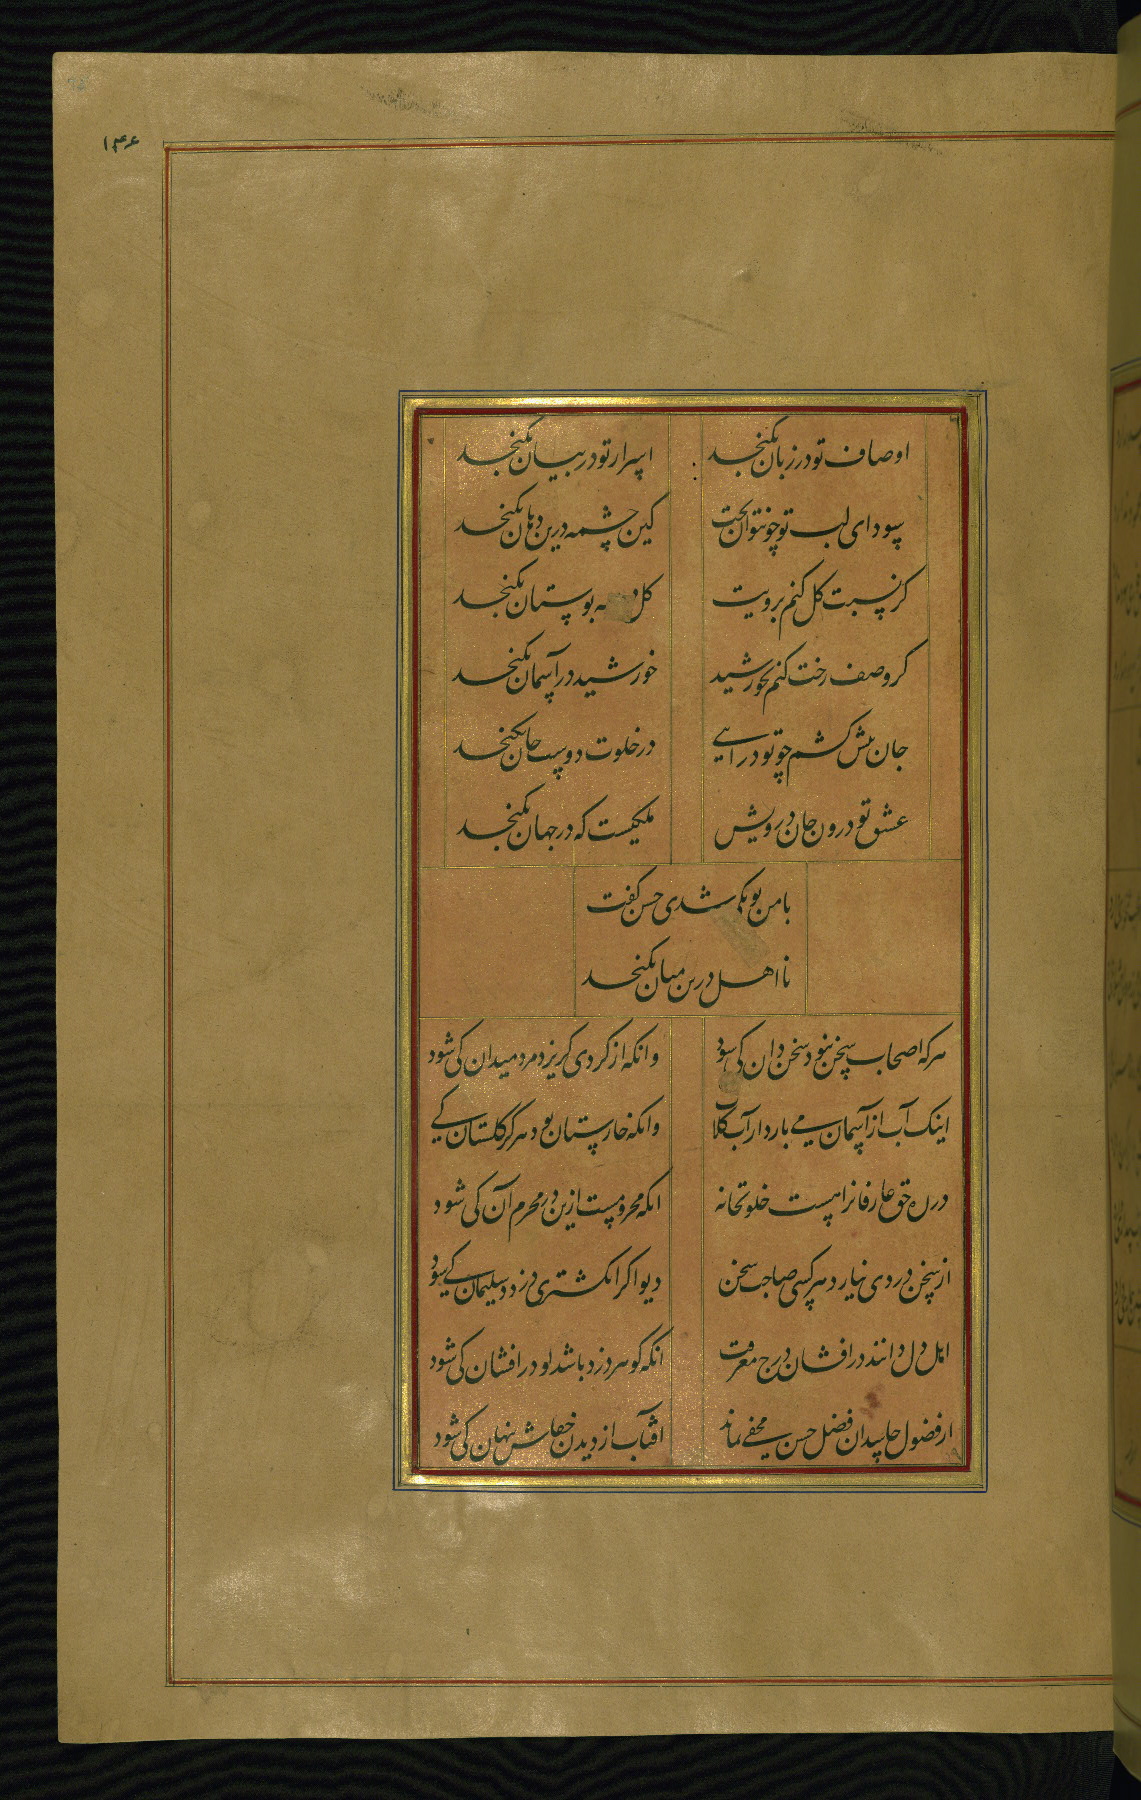 ۱۴۶
اوصاف تو در زبان نکنجد اسرار تو در بیان نکنجد
سودای لب تو چون توان پخت کین چشمه درین دهان نکنجد
کر نسبت کل کنم برویت کل به بوستان نکنجد
کر وصف رخت کنم بخورشید خورشید در آسمان نکنجد
جان پیش کشم چو تو درایی در خلوت دوست جان نکنجد
عشق تو درون جان درویش ملکیست که در جهان نکنجد
با من تو یکی شدی حسن کفت
نااهل درین میان نکنجد
هرکه اصحاب سخن نبود سخن دان کی شود وانکه از کردی کریزد مرد میدان کی شود
اینک آب از آسمان می بارد ار آب کلاب وانکه خارستان بود هرکز کلستان کی
در ره حق عارفانرا هست خلوتخانه انکه محرومست ازین در محرم آن کی شود
از سخن دردی نیارد هرکسی صاحب سخن دیو اکر انکشتری دزدد سلیمان کی شود
اهل دل دانند در افشان درج معرفت انکه کوهر دزد باشد لو در افشان کی شود
از فضول حاسدان فضل حسن مخفی نماند افتاب از دیدن خفاش پنهان کی شود